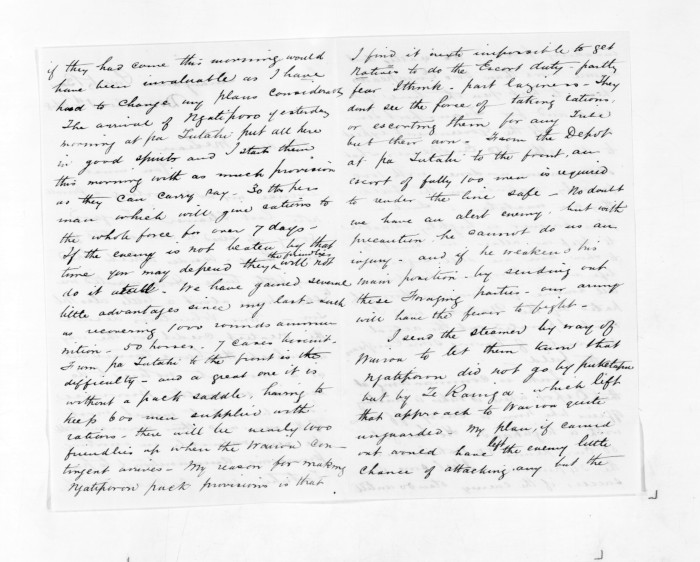 if they had come this morning would
have been invaluable as I have
had to change my plans considerably
The arrival of Ngatiporo yesterday
morning at pa Tutahi put all here
in good spirits and I start them
this morning with as much provision
as they can carry say - 30 lbs per
man which will give rations to
the whole force for over 7 days -
If the enemy is not beaten by that
time you may depend they the friendlies will not
do it at all. We have gained several
little advantages since my last - such
as recovering 1000 rounds ammu
nition - 50 horses. 7 cases biscuit -
From pa Tutahi to the front is the
difficulty - and a great one it is
without a pack saddle, having to
keep 600 men supplied with
rations - there will be nearly 1000
friendlies up when the Wairoa Con-
tingent arrives - My reason for making
Ngatiporou pack provisions is that
I find it next impossible to get
Natives to do the Escort duty - partly
fear I think - part laziness - They
dont see the force of taking rations
or escorting them for any Tribe
but their own - From the Depot
at pa Tutahi to the front, an
escort of fully 100 men is required
to render the line safe - No doubt
we have an alert enemy, but with
precaution he cannot do us an
injury - and if he weakens his
main position - by sending out
these Foraging parties - our army
will have the fewer to fight -
I send the steamer by way of
Wairoa to let them know that
Ngatiporou did not go by puketapu
but by Te Reinga which left
that approach to Wairoa quite
unguarded - My plan, if carried
out would have left the enemy little
Chance of attacking any but the